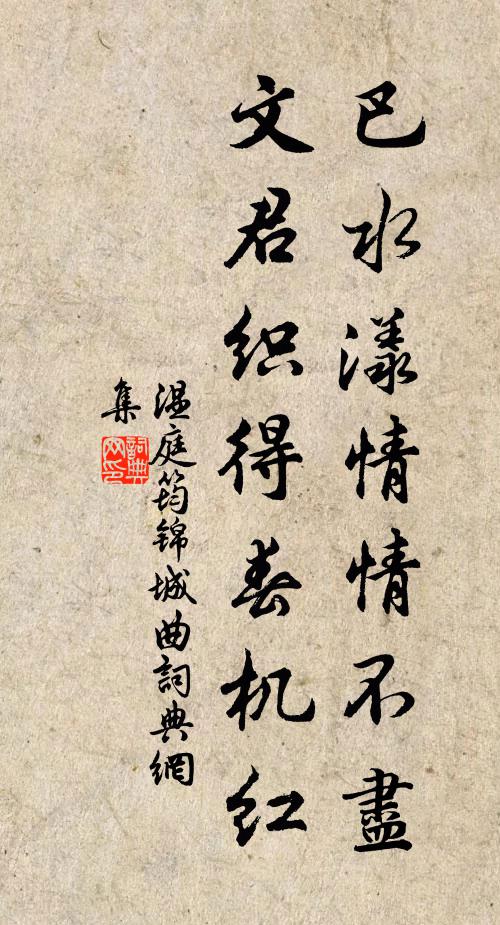 巴水漾情情不盡
文君织得春机红
温庭筠锦城曲詞典網
集
詞典
网印